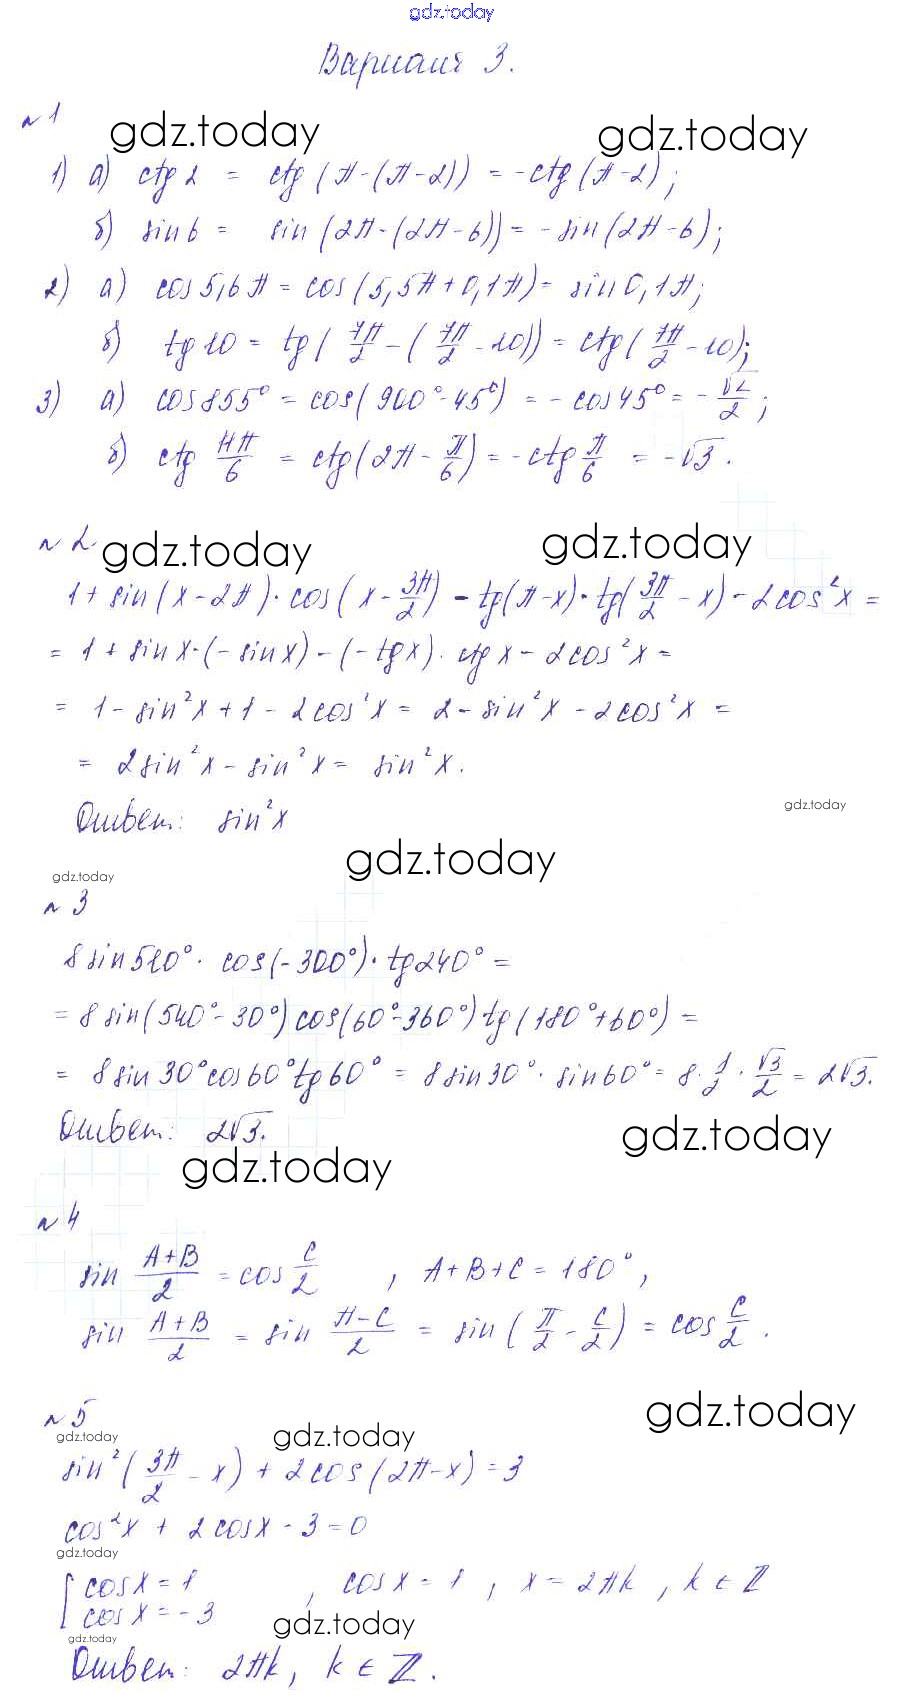 gdz.today
Вариант 3.
№1
gdz.today gdz.today
1) а) ctg 2 = ctg (π-(π-2)) = -ctg (π-2);
б) sin 6 = sin (2π-(2π-6)) = -sin (2π-6);
2) а) cos 5,6π = cos (5,5π+0,1π) = sin 0,1π;
б) tg 10 = tg (7π/2 - (7π/2 - 10)) = ctg (7π/2 - 10);
3) а) cos 855° = cos (900°-45°) = -cos 45° = -√2/2;
б) ctg 11π/6 = ctg (2π - π/6) = -ctg π/6 = -√3.
№2
gdz.today gdz.today
1 + sin (x-2π) · cos (x - 3π/2) - tg (π-x) · tg (3π/2 - x) - 2cos²x =
= 1 + sin x · (-sin x) - (-tg x) · ctg x - 2cos²x =
= 1 - sin²x + 1 - 2cos²x = 2 - sin²x - 2cos²x =
= 2sin²x - sin²x = sin²x.
Ответ: sin²x
gdz.today
gdz.today
gdz.today
№3
8 sin 510° · cos (-300°) · tg 240° =
= 8 sin (540°-30°) cos (60°-360°) tg (180°+60°) =
= 8 sin 30° cos 60° tg 60° = 8 sin 30° · sin 60° = 8 · 1/2 · √3/2 = 2√3.
Ответ: 2√3.
gdz.today
gdz.today
№4
sin (A+B)/2 = cos C/2 , A+B+C = 180°,
sin (A+B)/2 = sin (π-C)/2 = sin (π/2 - C/2) = cos C/2.
№5
gdz.today
gdz.today
gdz.today
sin² (3π/2 - x) + 2cos (2π-x) = 3
cos²x + 2cos x - 3 = 0
gdz.today
[ cos x = 1 , cos x = 1 , x = 2πk , k ∈ ℤ
cos x = -3
gdz.today
gdz.today
Ответ: 2πk, k ∈ ℤ.